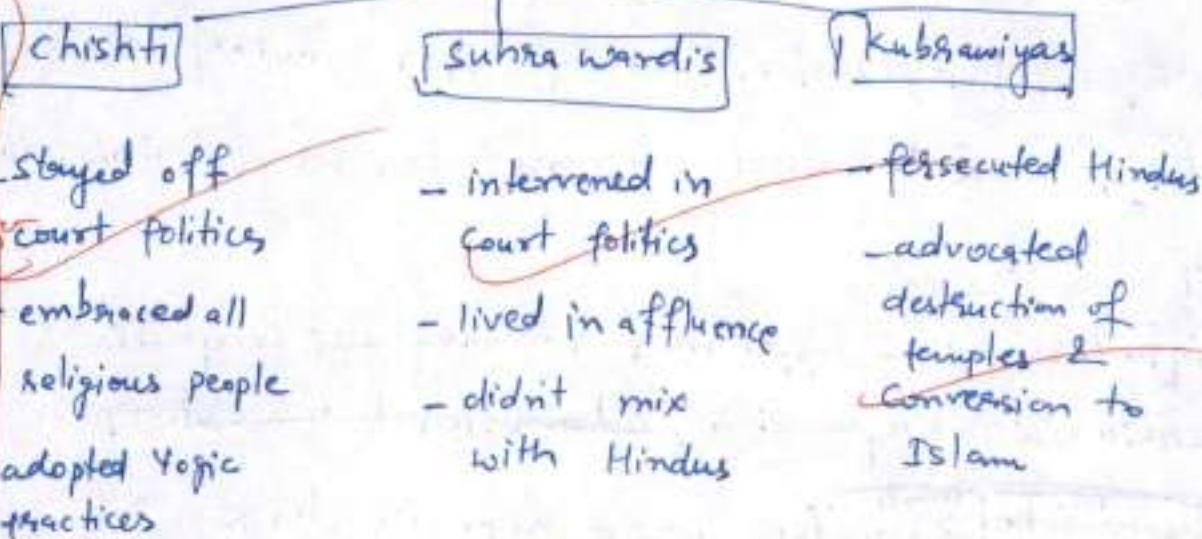 Chishti
Suhra wardis
Kubrawiyas
- Stayed off
court politics
- embraced all
religious people
adopted Yogic
practices
- intervened in
court politics
- lived in affluence
- didn't mix
with Hindus
- persecuted Hindus
- advocated
destruction of
temples &
Conversion to
Islam